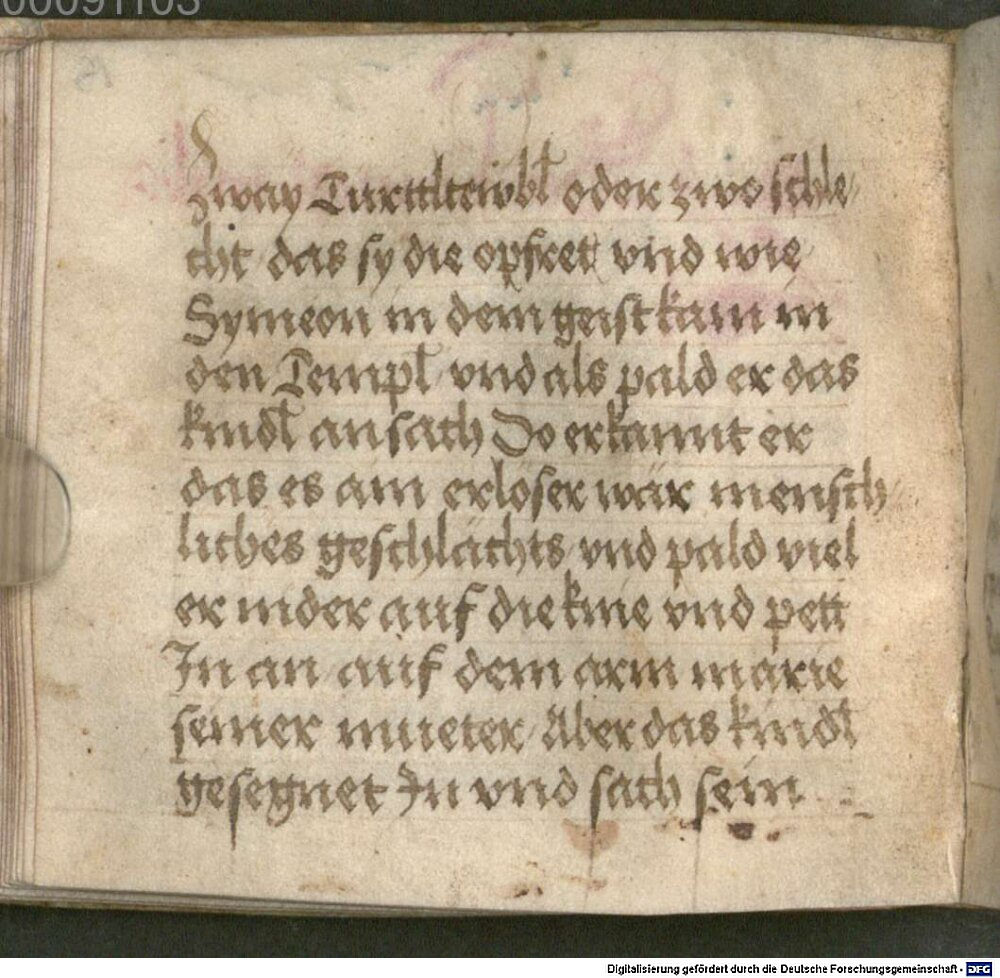 00091103
Zway Turttlteibl oder zwo schle
cht das sy die opfret vnd wie
Symeon in dem geist kam in
den Templ vnd als pald er das
kindl ansach Do erkannt er
das es ain erlöser wär mensch
liches geschlächts vnd pald viel
er nider auf die knie vnd pett
In an auf dem arm marie
seiner mueter Aber das kindl
gesegnet In vnd sach sein
Digitalisierung gefördert durch die Deutsche Forschungsgemeinschaft - DFG